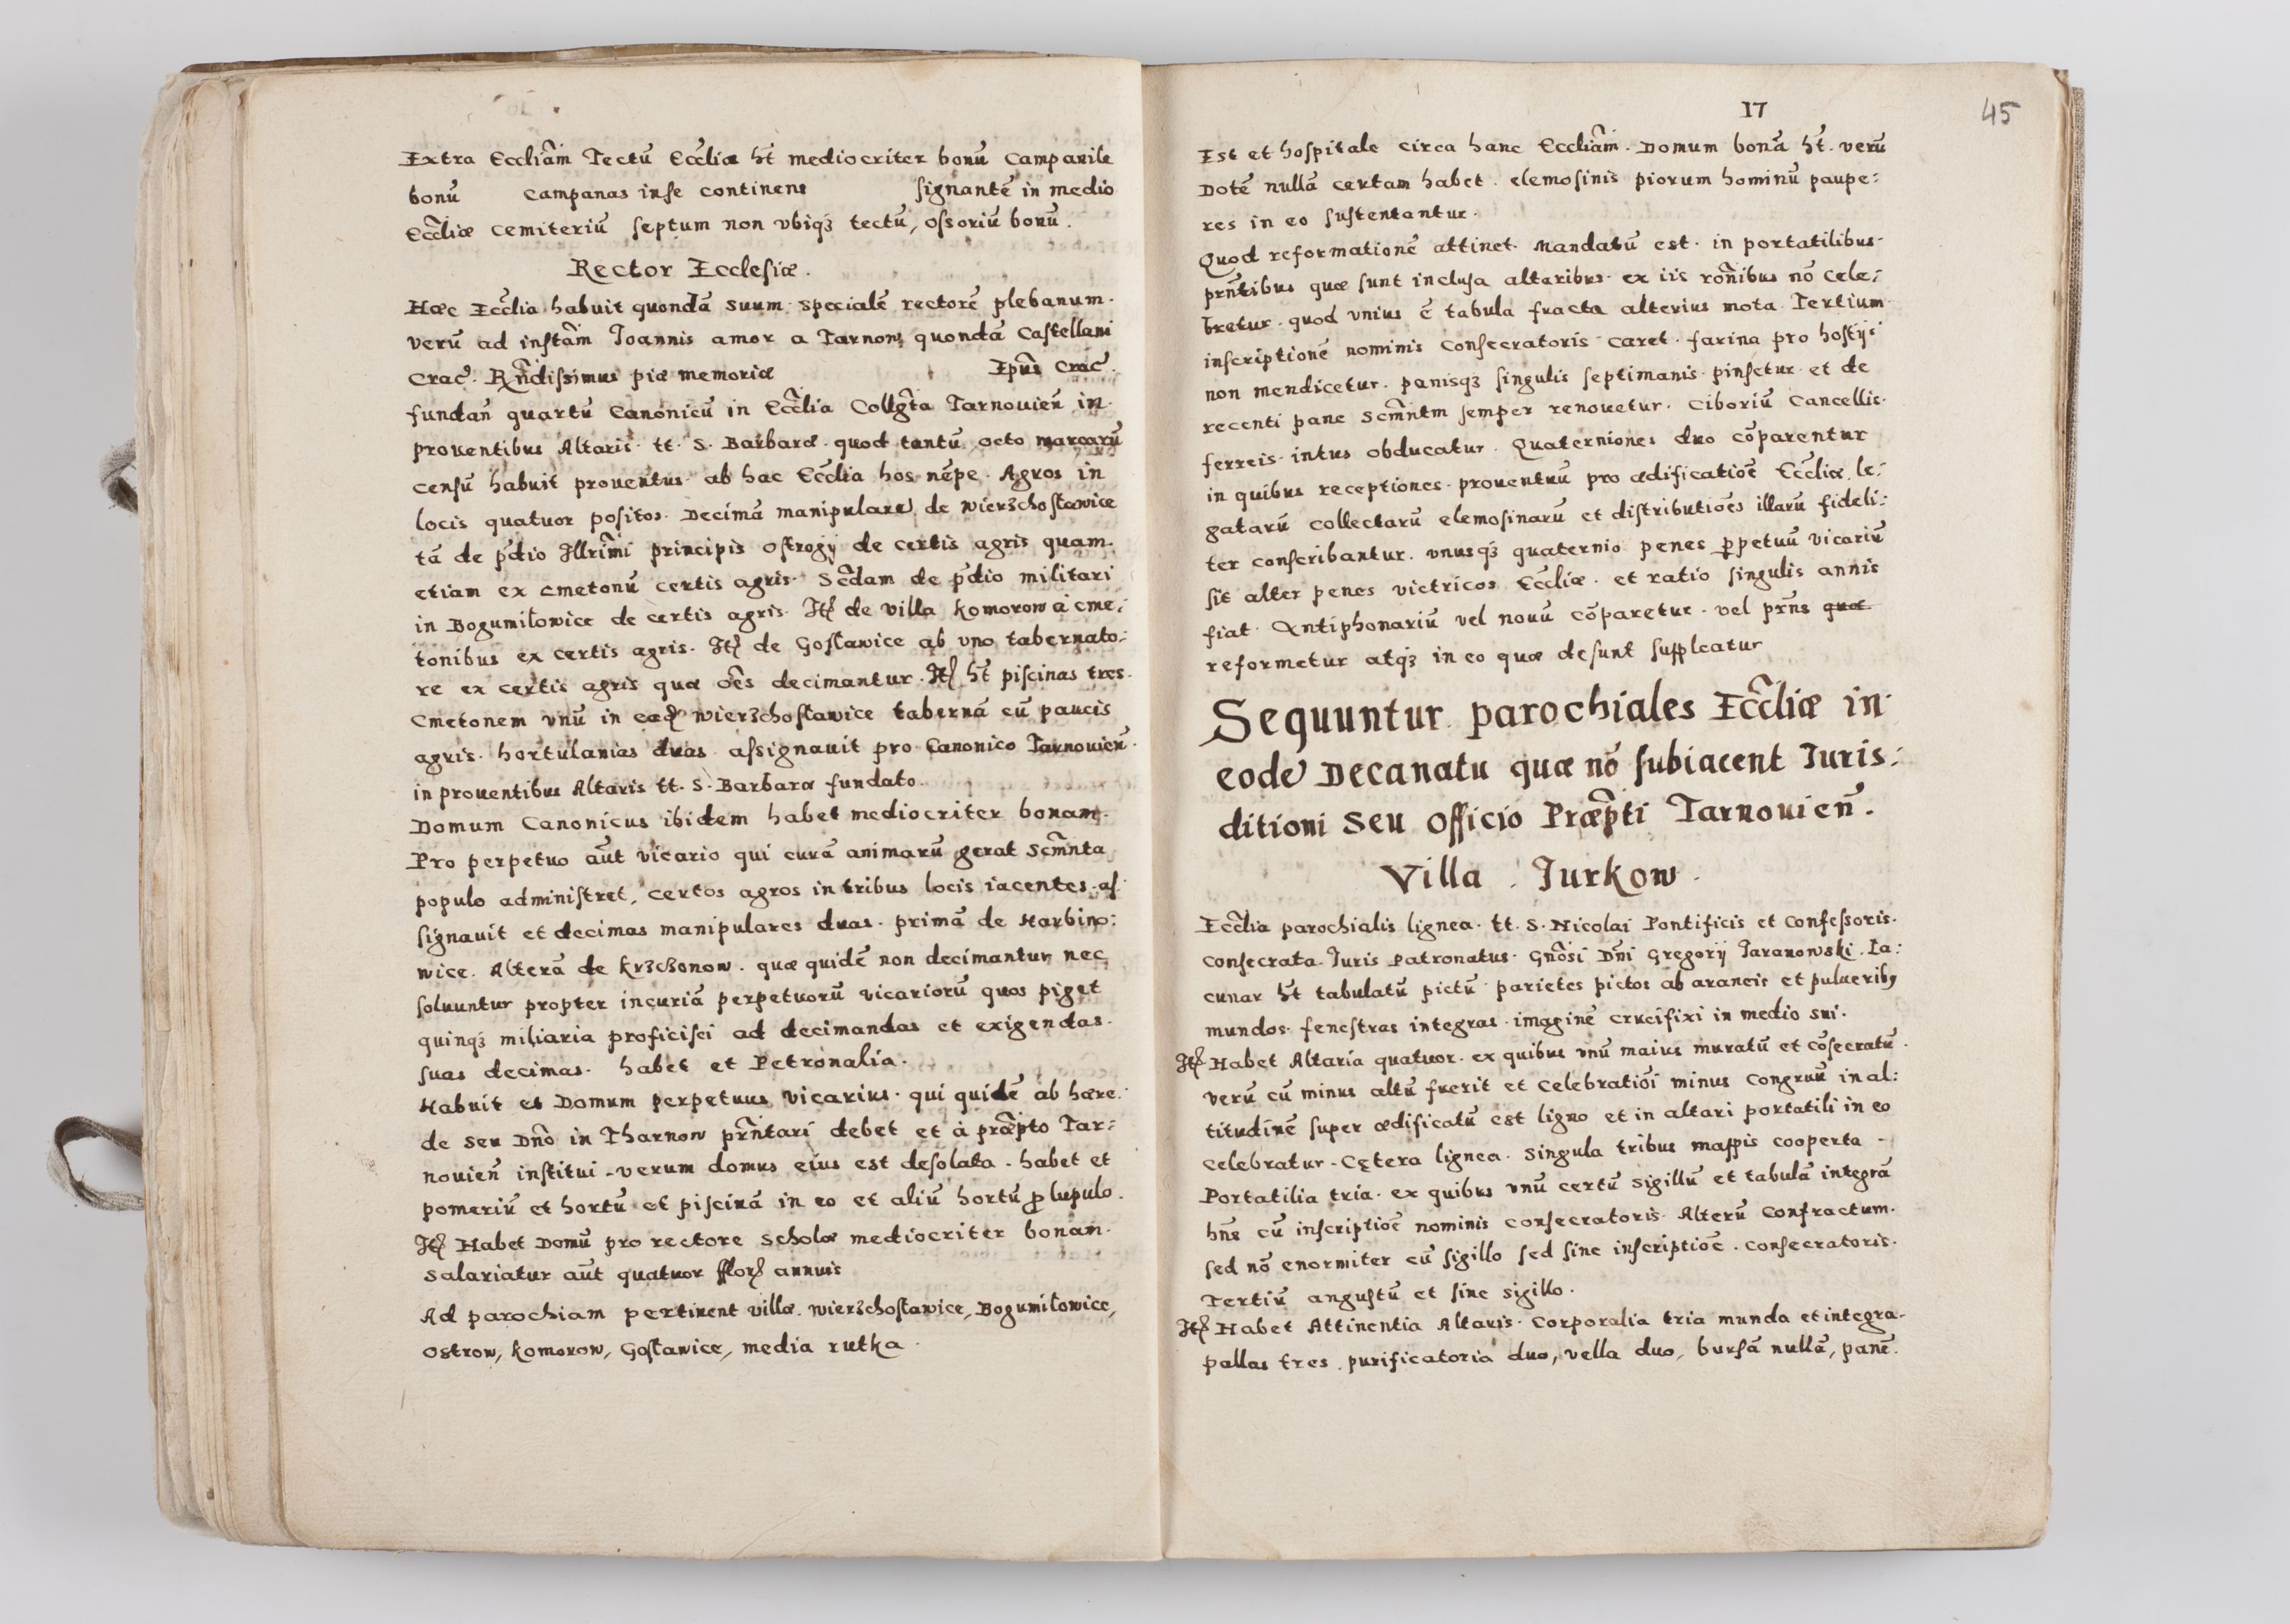 Extra Eccliãm Tectũ Ecc̃liæ ht̃ mediocriter bonũ Campanile
bonũ campanas inse continens signantẽ in medio
Ecc̃liæ cemiteriũ septum non vbiqꝫ tectũ, ossoriũ bonũ.
Rector Ecclesiæ.
Hæc Ecc̃lia habuit quondã suum specialẽ rectorẽ plebanum.
verũ ad instãm Joannis amor a Tarnow quondã Castellani
Crac̃. Rñdissimus piæ memoriæ Ep̃us Crac̃.
fundañ quartũ Canonicũ in Ecc̃lia Collgr̃a Tarnouieñ in
prouentibus Altaris tt. S. Barbaræ. quod tantũ octo marcarũ
censũ habuit prouentus ab hac Ecc̃lia hos nẽpe. Agros in
locis quatuor positos. Decimã manipularẽ de wierzchosławice
tã de p̃dio Illrimĩ principis Ostrogij de certis agris quam
etiam ex cmetonũ certis agris. Scd̃am de p̃dio militari
in Bogumiłowice de certis agris. Itꝫ de villa Komorow à cme:
tonibus ex certis agris. Itꝫ de Gosławice ab vno tabernato:
re ex certis agris quæ oẽs decimantur. Itꝫ ht̃ piscinas tres.
Cmetonem vnũ in eadẽ wierzchosławice tabernã cũ paucis
agris. hortulanias duas. assignauit pro Canonico Tarnouieñ.
in prouentibus Altaris tt. S. Barbaræ fundato.
Domum Canonicus ibidem habet mediocriter bonam.
Pro perpetuo aũt vicario qui curã animarũ gerat Scm̃nta
populo administret, certos agros in tribus locis iacentes as
signauit et decimas manipulares duas. primã de Harbino:
wice. Alterã de Krzczonow. quæ quidẽ non decimantur nec
soluuntur propter incuriã perpetuorũ vicariorũ quos piget
quinqꝫ miliaria proficisci ad decimandas et exigendas
suas decimas. habet et Petronalia.
Habuit et Domum perpetuus vicarius. qui quidẽ ab hære:
de seu Dño in Tharnow prñtari debet et à præp̃to Tar:
nouieñ institui. verum domus eius est desolata. habet et
pomeriũ et hortũ et piscinã in eo et aliũ hortũ ꝓ lupulo.
Itꝫ Habet Domũ pro rectore scholæ mediocriter bonam.
Salariatur aũt quatuor fflorꝫ annuis
Ad parochiam pertinent villæ. wierzchosławice, Bogumiłowice,
Ostrow, Komorow, Gosławice, media rutka.
17
45
Est et hospitale circa hanc Eccliãm. Domum bonã ht̃. verũ
Dotẽ nullã certam habet. elemosinis piorum hominũ paupe:
res in eo sustentantur.
Quod reformationẽ attinet. Mandatũ est. in portatilibus
prñtibus quæ sunt inclusa altaribus. ex iis roñibus nõ cele:
bretur. quod vnius ẽ tabula fracta alterius mota. Tertium
inscriptionẽ nominis Consecratoris caret. farina pro hostijs
non mendicetur. panisqꝫ singulis septimanis pinsetur et de
recenti pane Scm̃ntm semper renouetur. Ciboriũ Cancellis
ferreis intus obducatur. Quaterniones duo cõparentur
in quibus receptiones prouentuũ pro ædificatiõe Ecc̃liæ le:
gatarũ collectarũ elemosinarũ et distributiões illarũ fideli:
ter conscribantur. vnusqꝫ quaternio penes ꝑpetuũ vicariũ
sit alter penes victricos Ecc̃liæ. et ratio singulis annis
fiat. Antiphonariũ vel nouũ cõparetur. vel prñs quæ
reformetur atqꝫ in eo quæ desunt suppleatur
Sequuntur parochiales Ecc̃liæ in
eodẽ Decanatu quæ nõ subiacent Juris:
ditioni seu officio Præp̃ti Tarnouieñ.
Villa Jurkow.
Ecc̃lia parochialis lignea. tt. S. Nicolai Pontificis et Confessoris.
consecrata. Juris Patronatus. Gñosi Dñi Gregorij Taranowski. La:
cunar ht̃ tabulatũ pictũ parietes pictos ab araneis et puluerib9
mundos. fenestras integras. imaginẽ crucifixi in medio sui.
Itꝫ Habet Altaria quatuor. ex quibus vnũ maius muratũ et cõsecratũ.
verũ cũ minus altũ fuerit et celebratiõi minus congruũ in al:
titudinẽ super ædificatũ est ligno et in altari portatili in eo
celebratur. Cętera lignea. singula tribus mappis cooperta
Portatilia tria. ex quibus vnũ certũ sigillũ et tabulã integrã
hñs cũ inscriptiõe nominis consecratoris. Alterũ Confractum.
sed nõ enormiter cũ sigillo sed sine inscriptiõe. consecratoris.
Tertiũ angustũ et sine sigillo.
Itꝫ Habet Attinentia Altaris. Corporalia tria munda et integra.
pallas tres. purificatoria duo, vella duo, bursã nullã, panẽ.